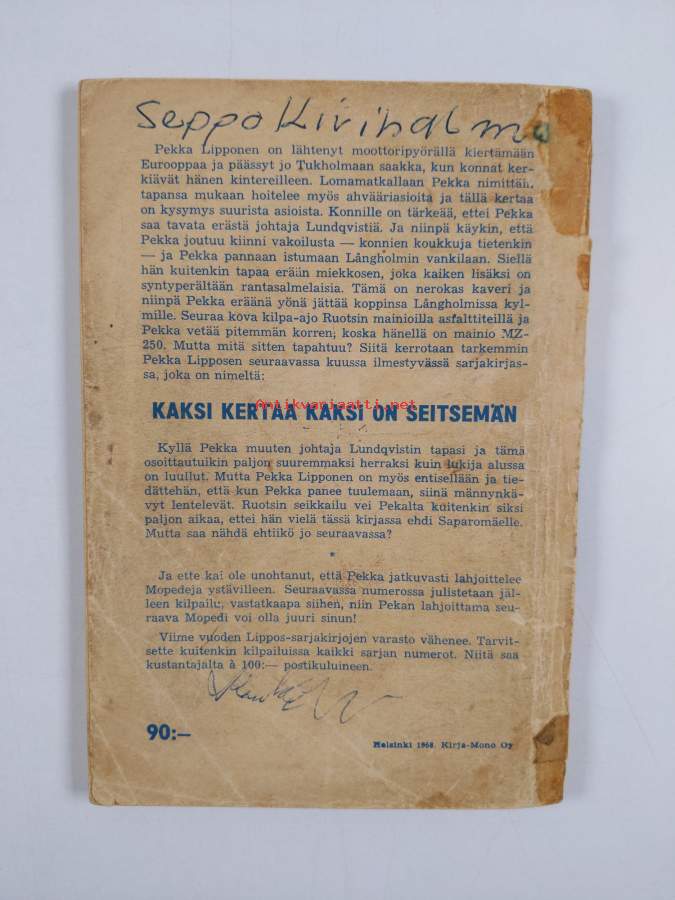 Seppo Kiviholm
Pekka Lipponen on lähtenyt moottoripyörällä kiertämään
Eurooppaa ja päässyt jo Tukholmaan saakka, kun konnat ker-
kiävät hänen kintereilleen. Lomamatkallaan Pekka nimittäin
tapansa mukaan hoitelee myös ahvääriasioita ja tällä kertaa
on kysymys suurista asioista. Konnille on tärkeää, ettei Pekka
saa tavata erästä johtaja Lundqvistiä. Ja niinpä käykin, että
Pekka joutuu kiinni vakoilusta — konnien koukkuja tietenkin
— ja Pekka pannaan istumaan Långholmin vankilaan. Siellä
hän kuitenkin tapaa erään miekkosen, joka kaiken lisäksi on
syntyperältään rantasalmelaisia. Tämä on nerokas kaveri ja
niinpä Pekka eräänä yönä jättää koppinsa Långholmissa kyl-
mille. Seuraa kova kilpa-ajo Ruotsin mainioilla asfalttiteillä ja
Pekka vetää pitemmän korren, koska hänellä on mainio MZ-
250. Mutta mitä sitten tapahtuu? Siitä kerrotaan tarkemmin
Pekka Lipposen seuraavassa kuussa ilmestyvässä sarjakirjas-
sa, joka on nimeltä:
Antikvariaatti.net
KAKSI KERTAA KAKSI ON SEITSEMÄN
Kyllä Pekka muuten johtaja Lundqvistin tapasi ja tämä
osoittautuikin paljon suuremmaksi herraksi kuin lukija alussa
on luullut. Mutta Pekka Lipponen on myös entisellään ja tie-
dättehän, että kun Pekka panee tuulemaan, siinä männynkä-
vyt lentelevät. Ruotsin seikkailu vei Pekalta kuitenkin siksi
paljon aikaa, ettei hän vielä tässä kirjassa ehdi Saparomäelle.
Mutta saa nähdä ehtiikö jo seuraavassa?
*
Ja ette kai ole unohtanut, että Pekka jatkuvasti lahjoittelee
Mopedeja ystävilleen. Seuraavassa numerossa julistetaan jäl-
leen kilpailu, vastatkaapa siihen, niin Pekan lahjoittama seu-
raava Mopedi voi olla juuri sinun!
Viime vuoden Lippos-sarjakirjojen varasto vähenee. Tarvit-
sette kuitenkin kilpailuissa kaikki sarjan numerot. Niitä saa
kustantajalta à 100:— postikuluineen.
90:—
Helsinki 1960. Kirja-Mono Oy